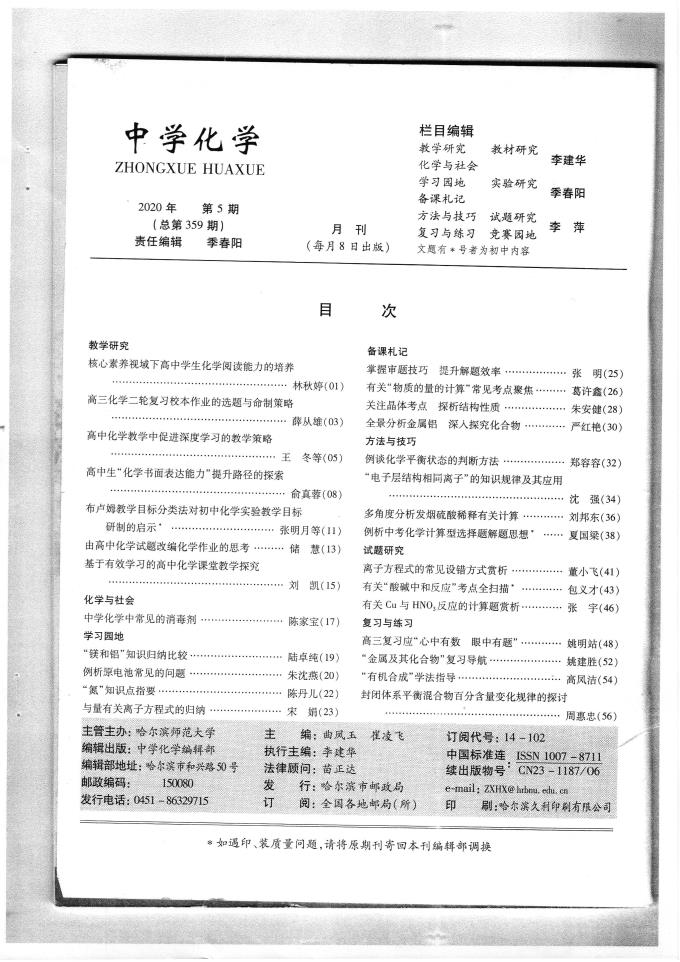 中学化学
ZHONGXUE HUAXUE
2020 年 第 5 期
(总第 359 期)
责任编辑 季春阳
月 刊
(每月 8 日出版)
栏目编辑
教学研究 教材研究
化学与社会
李建华
学习园地 实验研究
备课札记
季春阳
方法与技巧 试题研究
复习与练习 竞赛园地
李 萍
文题有 * 号者为初中内容
目 次
教学研究
核心素养视域下高中学生化学阅读能力的培养
…… 林秋婷(01)
高三化学二轮复习校本作业的选题与命制策略
…… 薛从雄(03)
高中化学教学中促进深度学习的教学策略
…… 王 冬等(05)
高中生“化学书面表达能力”提升路径的探索
…… 俞真蓉(08)
布卢姆教学目标分类法对初中化学实验教学目标
研制的启示* …… 张明月等(11)
由高中化学试题改编化学作业的思考 …… 储 慧(13)
基于有效学习的高中化学课堂教学探究
…… 刘 凯(15)
化学与社会
中学化学中常见的消毒剂 …… 陈家宝(17)
学习园地
“镁和铝”知识归纳比较 …… 陆卓纯(19)
例析原电池常见的问题 …… 朱沈燕(20)
“氮”知识点指要 …… 陈丹儿(22)
与量有关离子方程式的归纳 …… 宋 娟(23)
备课札记
掌握审题技巧 提升解题效率 …… 张 明(25)
有关“物质的量的计算”常见考点聚焦 …… 葛许鑫(26)
关注晶体考点 探析结构性质 …… 朱安健(28)
全景分析金属铝 深入探究化合物 …… 严红艳(30)
方法与技巧
例谈化学平衡状态的判断方法 …… 郑容容(32)
“电子层结构相同离子”的知识规律及其应用
…… 沈 强(34)
多角度分析发烟硫酸稀释有关计算 …… 刘邦东(36)
例析中考化学计算型选择题解题思想* …… 夏国梁(38)
试题研究
离子方程式的常见设错方式赏析 …… 董小飞(41)
有关“酸碱中和反应”考点全扫描* …… 包义才(43)
有关 Cu 与 HNO₃反应的计算题赏析 …… 张 宇(46)
复习与练习
高三复习应“心中有数 眼中有题” …… 姚明站(48)
“金属及其化合物”复习导航 …… 姚建胜(52)
“有机合成”学法指导 …… 高凤洁(54)
封闭体系平衡混合物百分含量变化规律的探讨
…… 周惠忠(56)
主管主办: 哈尔滨师范大学
编辑出版: 中学化学编辑部
编辑部地址: 哈尔滨市和兴路 50 号
邮政编码: 150080
发行电话: 0451 - 86329715
主 编: 曲凤玉 崔凌飞
执行主编: 李建华
法律顾问: 苗正达
发 行: 哈尔滨市邮政局
订 阅: 全国各地邮局(所)
订阅代号: 14 - 102
中国标准连续出版物号: ISSN 1007 - 8711
CN23 - 1187/O6
e-mail: ZXHX@hrbnu.edu.cn
印 刷: 哈尔滨久利印刷有限公司
* 如遇印、装质量问题,请将原期刊寄回本刊编辑部调换